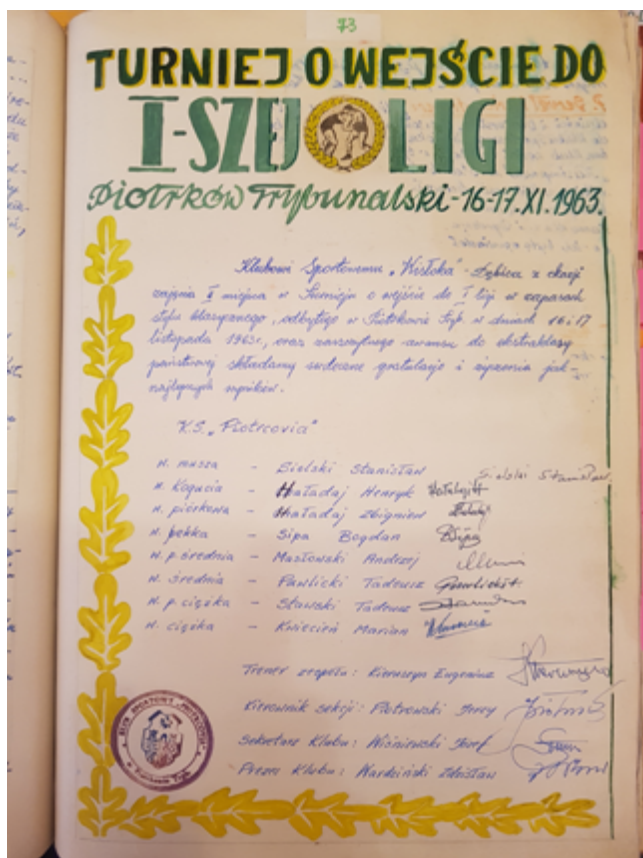 73
TURNIEJ O WEJŚCIE DO
I-SZEJ LIGI
Piotrków Trybunalski - 16-17.XI.1963.
Klubowi Sportowemu „Wisłoka” - Dębica z okazji
zajęcia I miejsca w Turnieju o wejście do I ligi w zapasach
stylu klasycznego, odbytego w Piotrkowie Tryb. w dniach 16 i 17
listopada 1963r, oraz zaszczytnego awansu do ekstraklasy
państwowej składamy serdeczne gratulacje i życzenia jak-
najlepszych wyników.
K.S. „Piotrcovia”
W. musza - Sielski Stanisław Sielski Stanisław
W. Kogucia - Hatadaj Henryk
W. piórkowa - Hatadaj Zbigniew
W. lekka - Sipa Bogdan Sipa
W. p. średnia - Masłowski Andrzej
W. średnia - Pawlicki Tadeusz
W. p. ciężka - Stawski Tadeusz
W. ciężka - Kwiecień Marian
Trener zespołu: Eugeniusz
Kierownik sekcji: Piotrowski Jerzy
Sekretarz Klubu: Wiśniewski Józef
Prezes Klubu: Wardziński Zdzisław